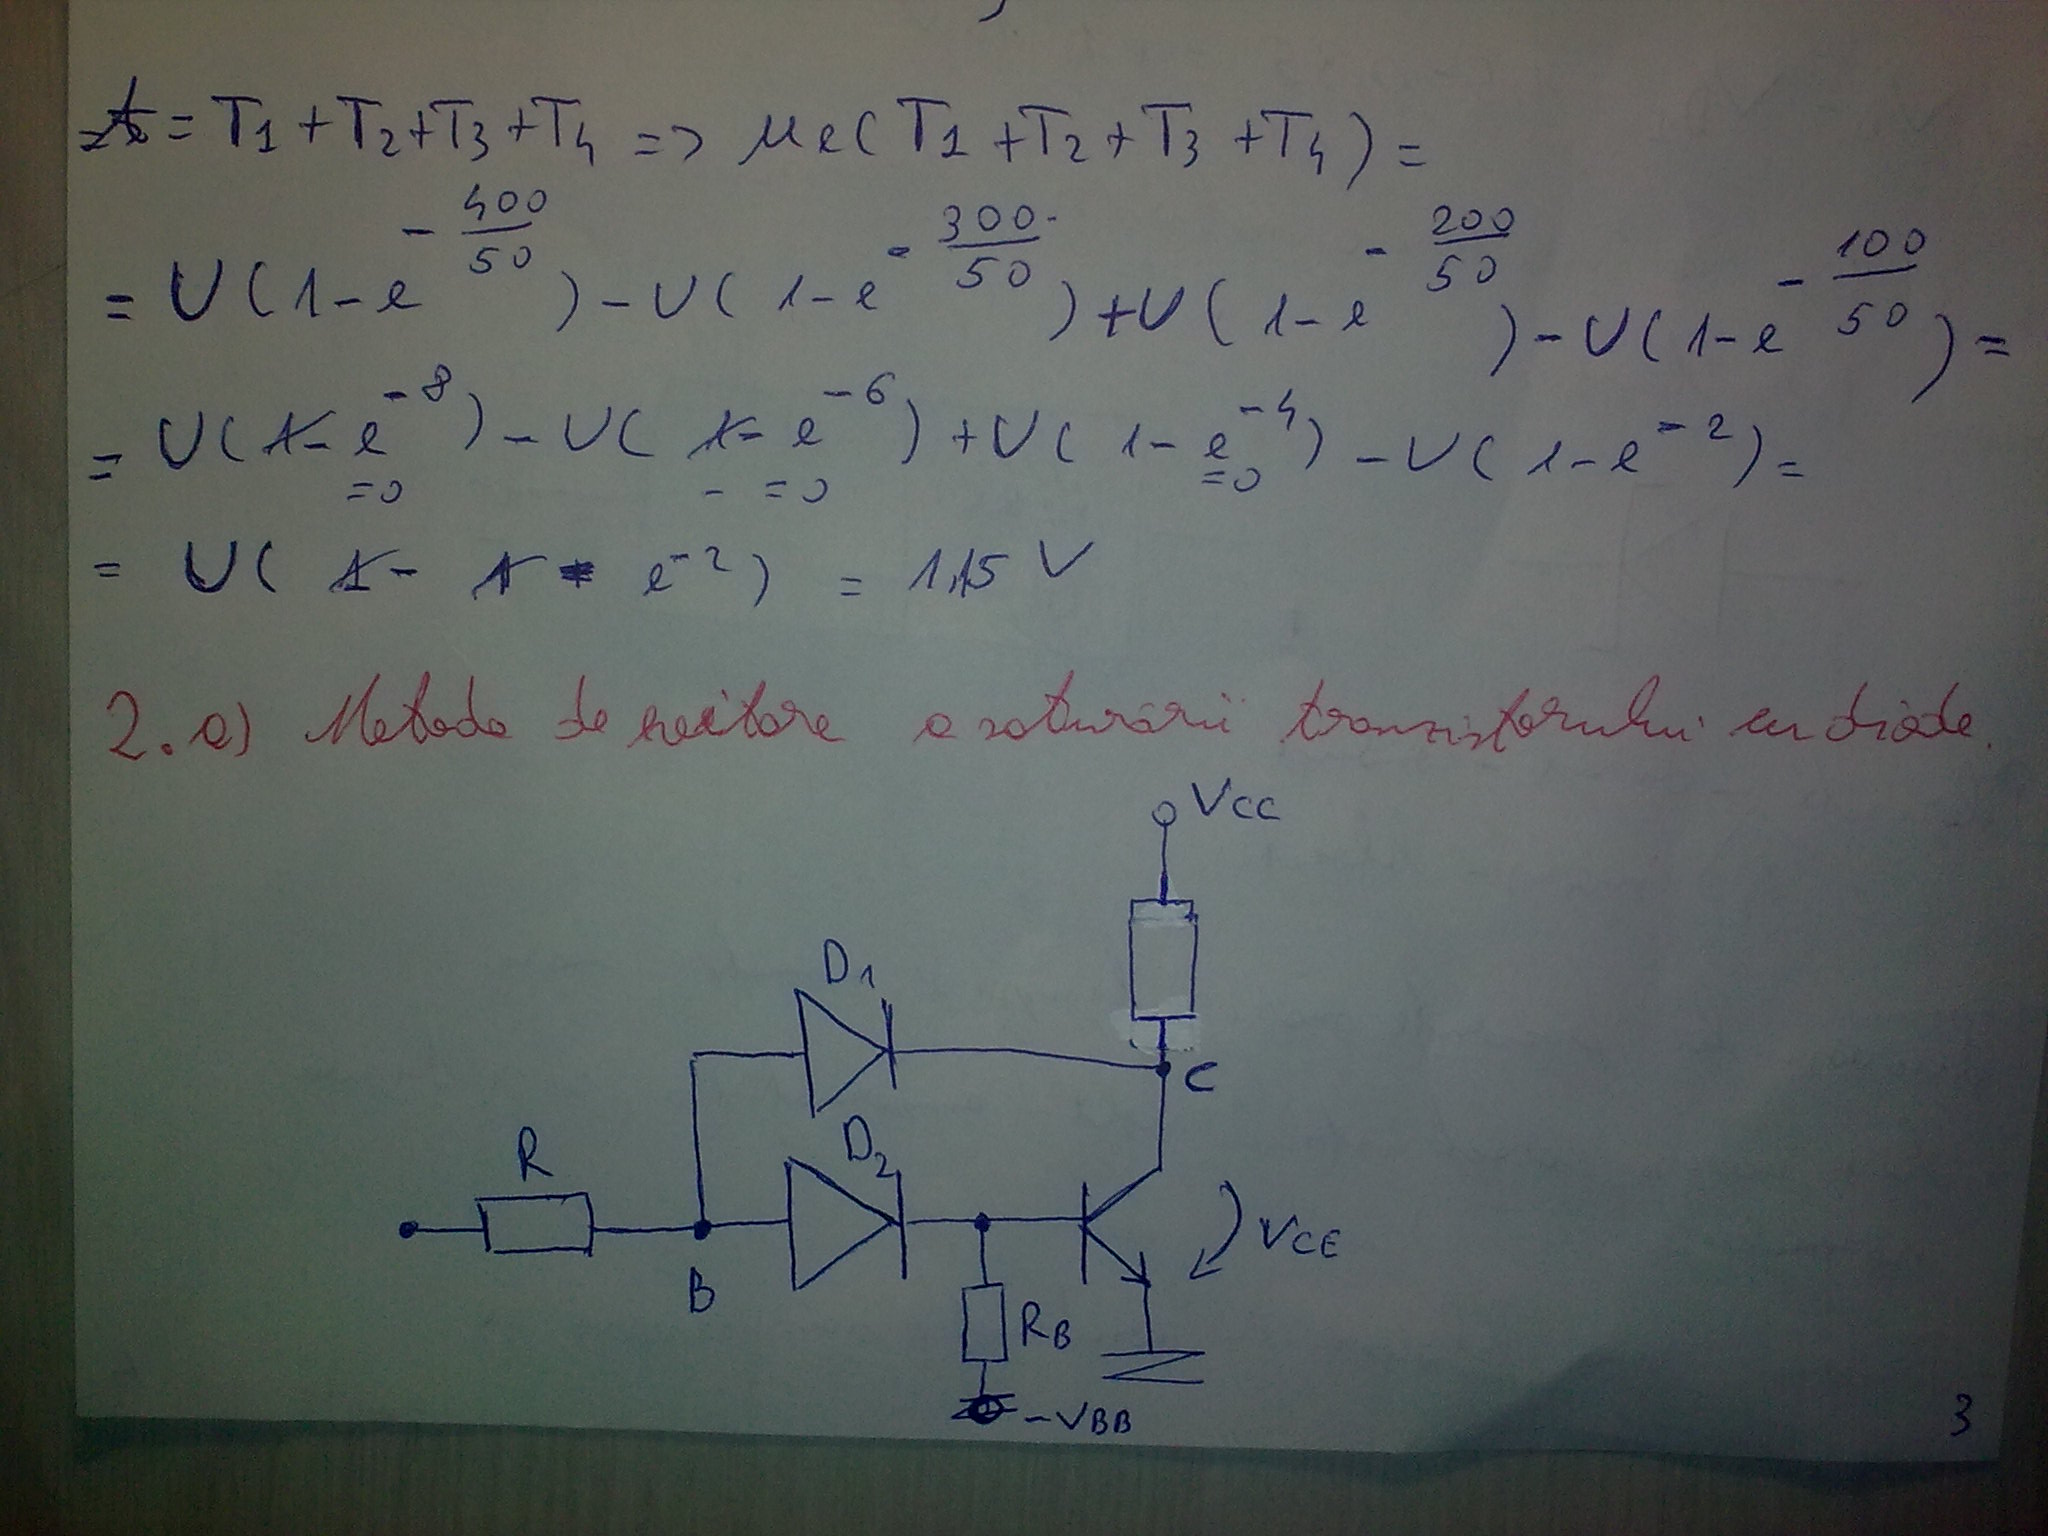 t = T1 + T2 + T3 + T4 => ue(T1 + T2 + T3 + T4) =
= U(1-e^-400/50) - U(1-e^-300/50) + U(1-e^-200/50) - U(1-e^-100/50) =
= U(1-e^-8) - U(1-e^-6) + U(1-e^-4) - U(1-e^-2) =
=0 - =0 =0
= U(1- 1 e^-2) = 1,15 V
2. a) Metoda de evitare a saturării tranzistorului cu diode.
VCC
D1
C
D2
R
VCE
B
RB
-VBB
3